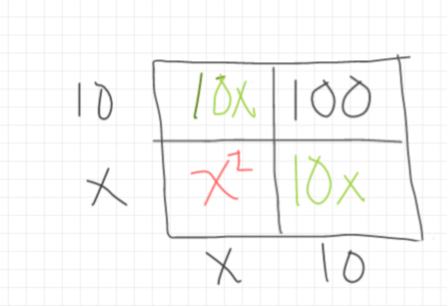 10 10x 100
x x² 10x
x 10